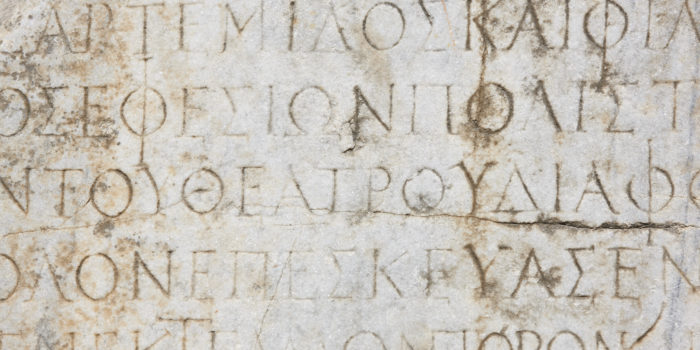 ΣΑΡΤΕΜΙΔΟΣΚΑΙΦΙΛ
ΟΣΕΦΕΣΙΩΝΠΟΛΙΣΤ
ΝΤΟΥΘΕΑΤΡΟΥΔΙΑΦΟ
ΟΛΟΝΕΠΕΣΚΕΥΑΣΕΝ